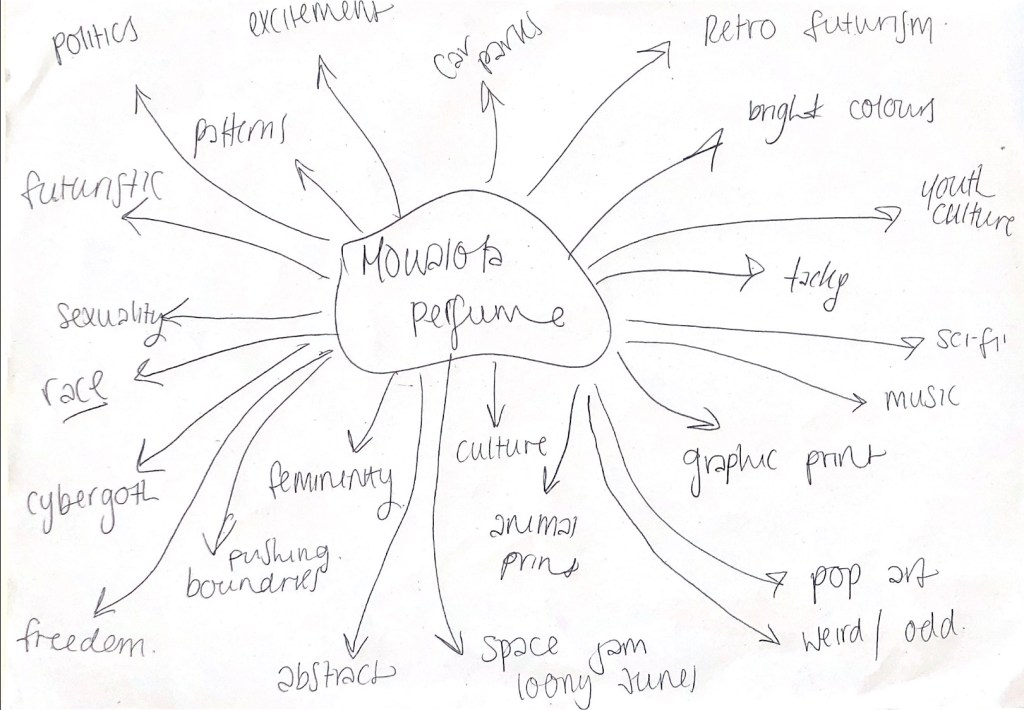 politics
excitement
car parks
Retro futurism.
patterns
bright colours
futuristic
youth
culture
Mowalola
perfume
tacky
sexuality
sci-fi
race
music
culture
graphic print
femininity
cybergoth
animal
prins
pushing.
boundries
pop art
freedom.
weird / odd.
abstract
space jam
loony tunes